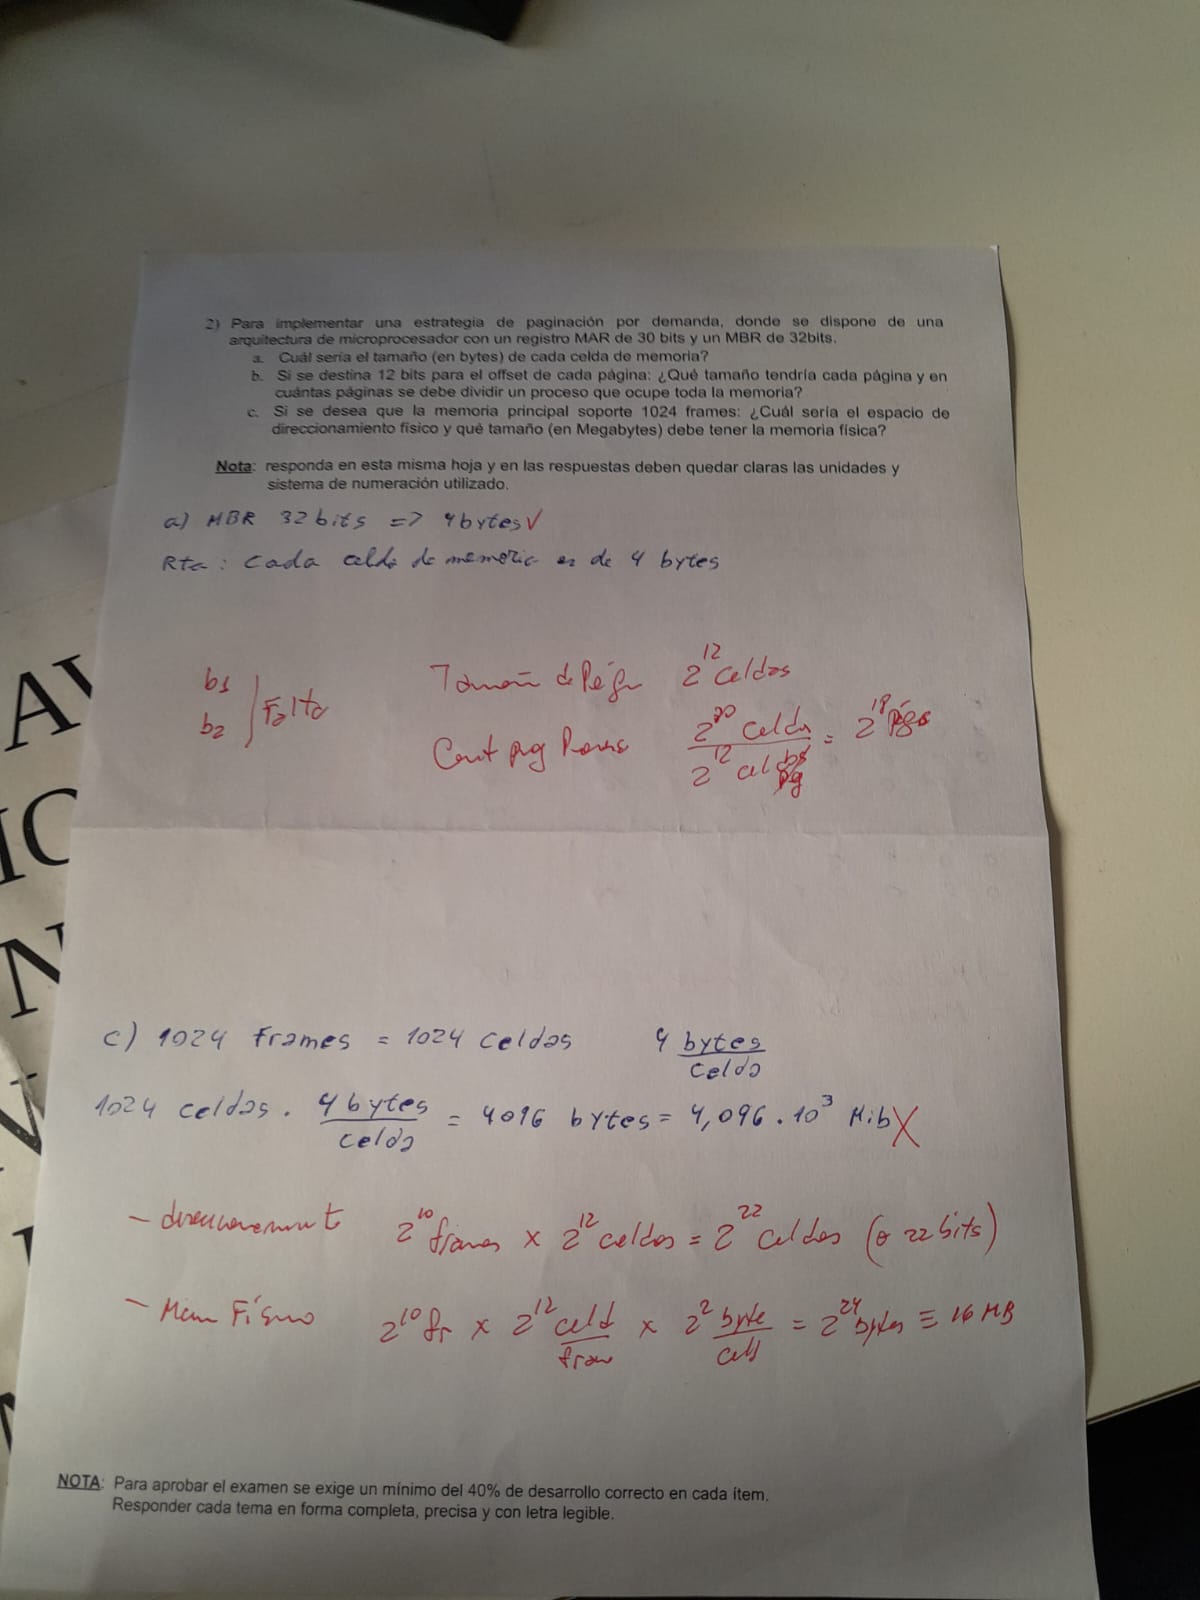 2) Para implementar una estrategia de paginación por demanda, donde se dispone de una
arquitectura de microprocesador con un registro MAR de 30 bits y un MBR de 32bits.
a. Cuál sería el tamaño (en bytes) de cada celda de memoria?
b. Si se destina 12 bits para el offset de cada página: ¿Qué tamaño tendría cada página y en
cuántas páginas se debe dividir un proceso que ocupe toda la memoria?
c. Si se desea que la memoria principal soporte 1024 frames: ¿Cuál sería el espacio de
direccionamiento físico y qué tamaño (en Megabytes) debe tener la memoria física?
Nota: responda en esta misma hoja y en las respuestas deben quedar claras las unidades y
sistema de numeración utilizado.
a) MBR 32 bits => 4 bytes √
Rta: Cada celda de memoria es de 4 bytes
b1
b2
Falta
Tamañ d Pág 2^12 celdas
Cant pag 2^30 celda / 2^12 cel = 2^18 págs
AV
IO
N
c) 1024 frames = 1024 celdas 4 bytes / celda
1024 celdas . 4 bytes / celda = 4096 bytes = 4,096 . 10^3 Mib X
- direccionamient 2^10 frames x 2^12 celdas = 2^22 celdas (o 22 bits)
- Mem Físic 2^10 fr x 2^12 celd / fram x 2^2 byte / celd = 2^24 bytes ≡ 16 MB
NOTA: Para aprobar el examen se exige un mínimo del 40% de desarrollo correcto en cada ítem.
Responder cada tema en forma completa, precisa y con letra legible.